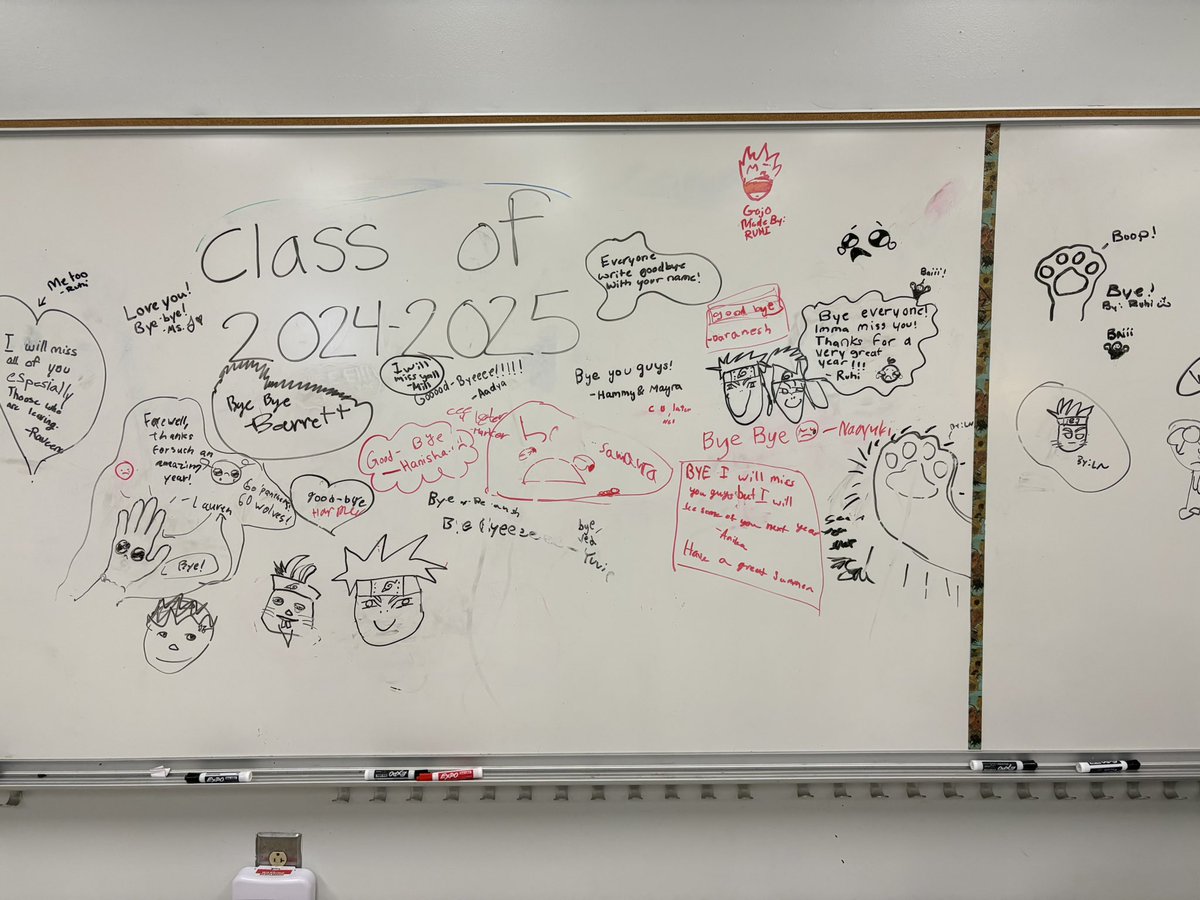 Class of
2024-2025
Me too
-Ruhi
I will miss
all of you
espesially
Those who
are leaving.
Love you!
Bye bye!
-Ms. J
Bye Bye
-Barrett
I will
miss yall
Gooood-Byeeee!!!!!
-Aadya
Everyone
write goodbye
with your name!
Gojo
Made By:
RUHI
good bye
-Daranesh
Baiii!
Bye everyone!
Imma miss you!
Thanks for a
very great
year!!!
-Ruhi
Bye you guys!
-Hammy & Mayra
Bye Bye
-Naoyuki
Farewell,
thanks
for such an
amazing
year!
-Lauren
Go panthers!
Go wolves!
Bye!
good-bye
Good-Bye
-Hanisha
BYE I will miss
you guys but I will
see some of you next year
-Anika
Have a great summer
bye
Boop!
Bye!
By: Ruhi
Baiii
By: LN
EXPO
EXPO
EXPO
EXPO
EXPO